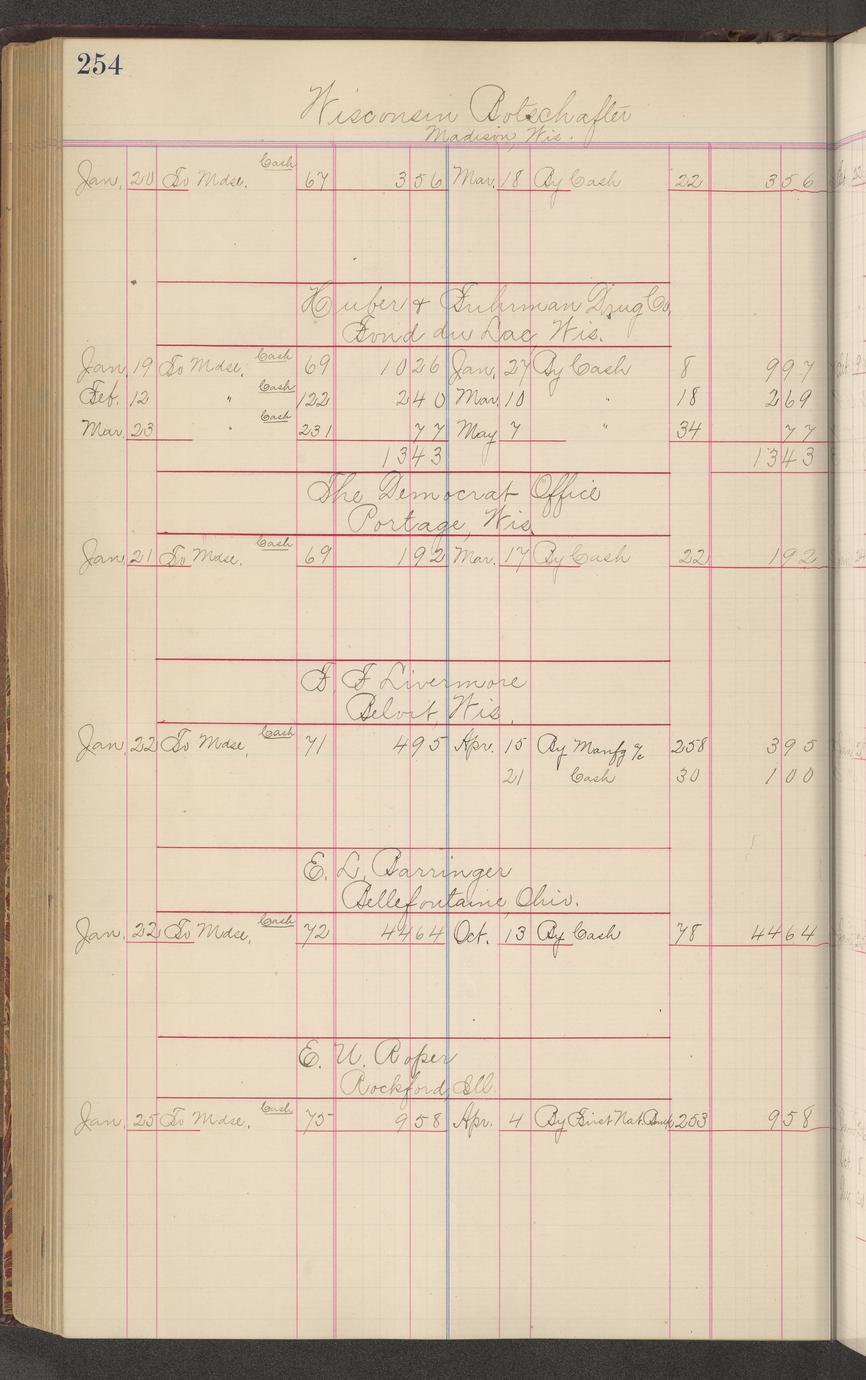 254
Wisconsin Botschafter
Madison, Wis.
Jan. 20 To Mdse. Cash 67 3 56 Mar. 18 By Cash 22 3 56
Huber & Fuhrman Drug Co.
Fond du Lac, Wis.
Jan. 19 To Mdse. Cash 69 10 26 Jan. 27 By Cash 8 9 97
Feb. 12 " Cash 122 2 40 Mar. 10 " 18 2 69
Mar. 23 " Cash 231 77 May 7 " 34 77
13 43 13 43
The Democrat Office
Portage, Wis.
Jan. 21 To Mdse. Cash 69 1 92 Mar. 17 By Cash 22 1 92
F. F. Livermore
Beloit, Wis.
Jan. 22 To Mdse. Cash 71 4 95 Apr. 15 By Manfg a/c 258 3 95
21 Cash 30 1 00
E. L. Barringer
Bellefontaine, Ohio.
Jan. 22 To Mdse. Cash 72 44 64 Oct. 13 By Cash 78 44 64
E. W. Roper
Rockford, Ill.
Jan. 25 To Mdse. Cash 75 9 58 Apr. 4 By First Nat. Bank 253 9 58